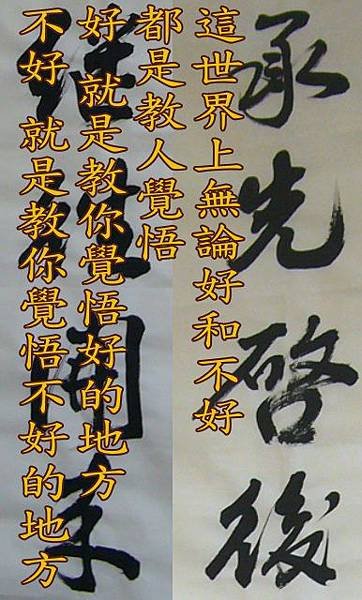 承先啓後
這世界上無論好和不好
都是教人覺悟
好 就是教你覺悟好的地方
不好 就是教你覺悟不好的地方
開